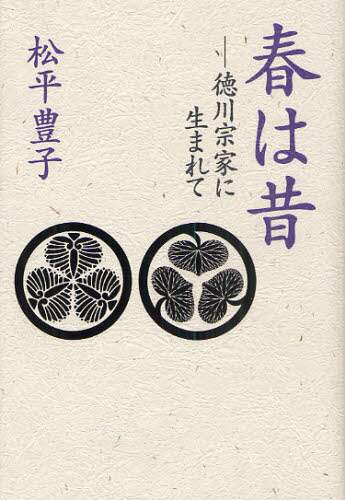 春は昔
―徳川宗家に
生まれて
松平豊子